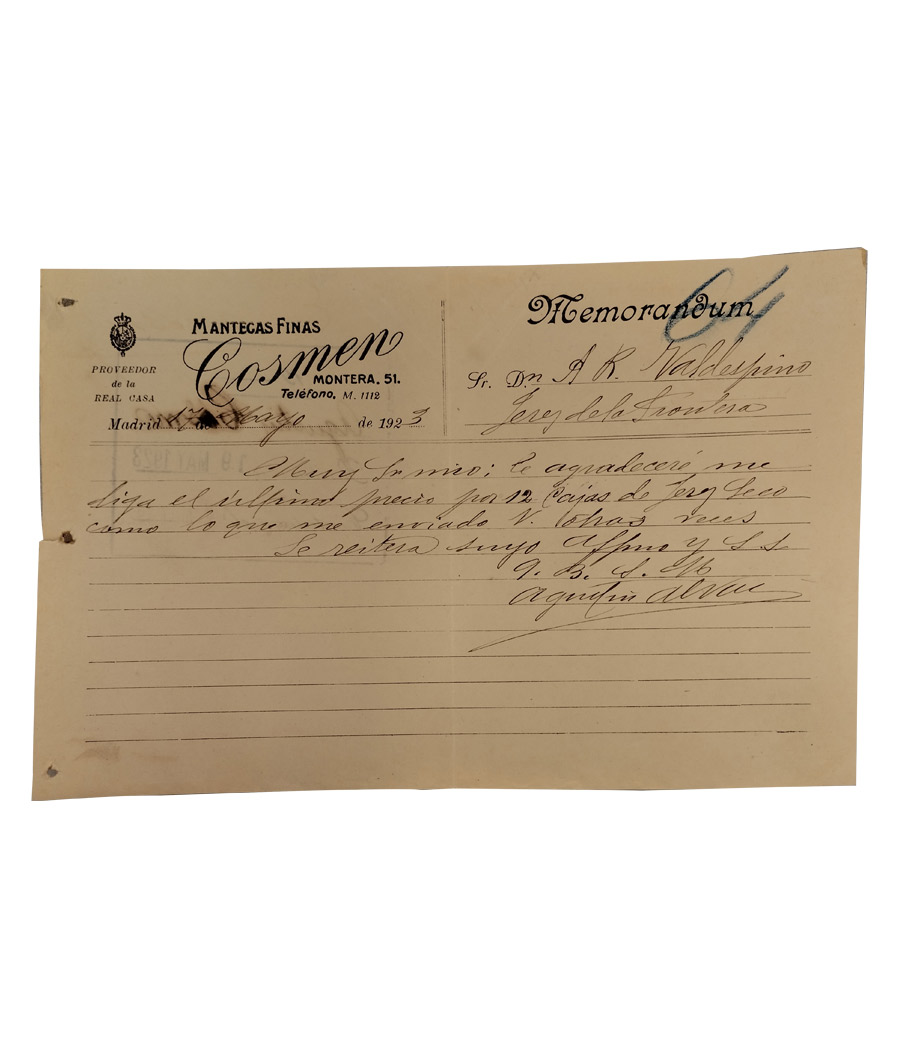 Memorandum
64
MANTEGAS FINAS
Cosmen
MONTERA. 51.
Teléfono, M. 1112
PROVEEDOR
de la
REAL CASA
Madrid 17 de Mayo de 1923
Sr. Dn A R. Valdespino
Jerez de la Frontera
Muy Sr mio; le agradeceré me
diga el ultimo precio por 12 Cajas de Jerez Seco
como lo que me enviado V. otras veces
Se reitera suyo Affmo y S. S.
q. B. S. M
Agustin